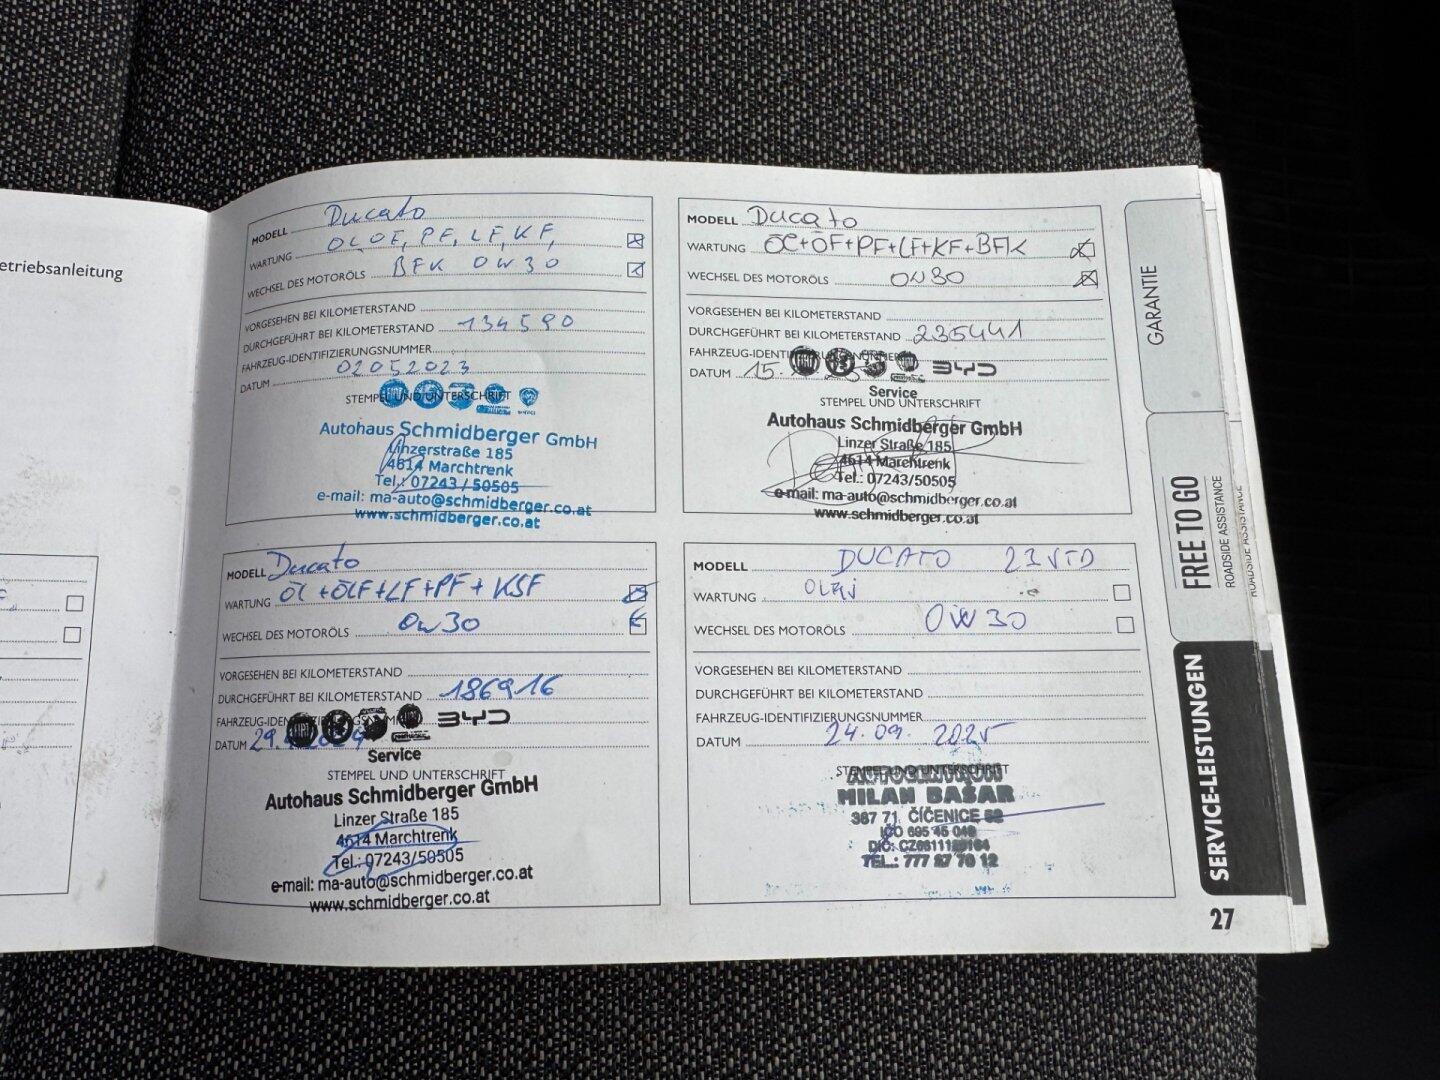 etriebsanleitung
MODELL Ducato
WARTUNG ÖL ÖF, PF, LF, KF,
WECHSEL DES MOTORÖLS BFK 0W30
VORGESEHEN BEI KILOMETERSTAND
DURCHGEFÜHRT BEI KILOMETERSTAND 134590
FAHRZEUG-IDENTIFIZIERUNGSNUMMER
DATUM 02052023
STEMPEL UND UNTERSCHRIFT
Autohaus Schmidberger GmbH
Linzerstraße 185
4614 Marchtrenk
Tel.: 07243/50505
e-mail: ma-auto@schmidberger.co.at
www.schmidberger.co.at
MODELL Ducato
WARTUNG ÖL+ÖF+PF+LF+KF+BFK
WECHSEL DES MOTORÖLS 0W30
VORGESEHEN BEI KILOMETERSTAND
DURCHGEFÜHRT BEI KILOMETERSTAND 235441
FAHRZEUG-IDENTIFIZIERUNGSNUMMER
DATUM 15.
BYD
Service
STEMPEL UND UNTERSCHRIFT
Autohaus Schmidberger GmbH
Linzer Straße 185
4614 Marchtrenk
Tel.: 07243/50505
e-mail: ma-auto@schmidberger.co.at
www.schmidberger.co.at
MODELL Ducato
WARTUNG ÖL+ÖLF+LF+PF+KSF
WECHSEL DES MOTORÖLS 0W30
VORGESEHEN BEI KILOMETERSTAND
DURCHGEFÜHRT BEI KILOMETERSTAND 186916
FAHRZEUG-IDENTIFIZIERUNGSNUMMER
BYD
DATUM 29.
Service
STEMPEL UND UNTERSCHRIFT
Autohaus Schmidberger GmbH
Linzer Straße 185
4614 Marchtrenk
Tel.: 07243/50505
e-mail: ma-auto@schmidberger.co.at
www.schmidberger.co.at
MODELL DUCATO 23VTD
WARTUNG OLEJ
WECHSEL DES MOTORÖLS 0W30
VORGESEHEN BEI KILOMETERSTAND
DURCHGEFÜHRT BEI KILOMETERSTAND
FAHRZEUG-IDENTIFIZIERUNGSNUMMER
DATUM 24.09. 2025
STEMPEL UND UNTERSCHRIFT
AUTOCENTRUM
MILAN BAŠAR
387 71 ČÍČENICE
IČO 695 45 049
DIČ: 
TEL.: 777 27 70 12
GARANTIE
FREE TO GO
ROADSIDE ASSISTANCE
ROADSIDE ASSISTANCE
SERVICE-LEISTUNGEN
27